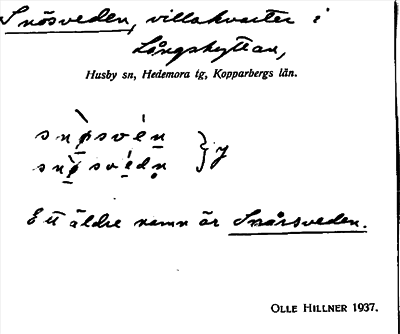 Snösveden, villakvarter i
Långshyttan,
Husby sn, Hedemora tg, Kopparbergs län.
Ett äldre namn är Snårsveden.
OLLE HILLNER 1937.